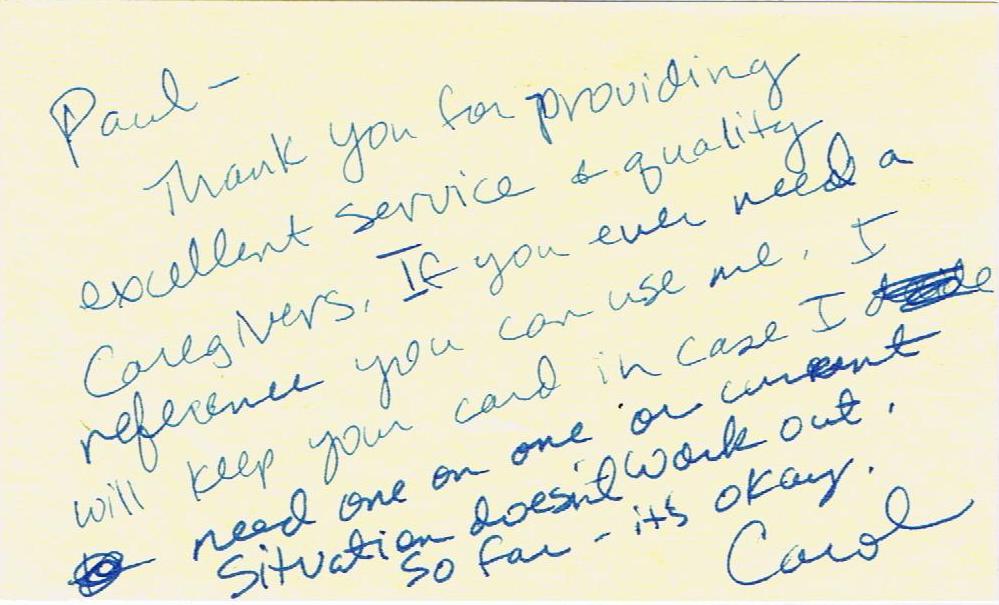 Paul -
Thank you for providing
excellent service & quality
Caregivers. If you ever need a
reference you can use me. I
will keep your card in case I
need one on one or current
situation doesn't work out.
So far - it's okay.
Carol